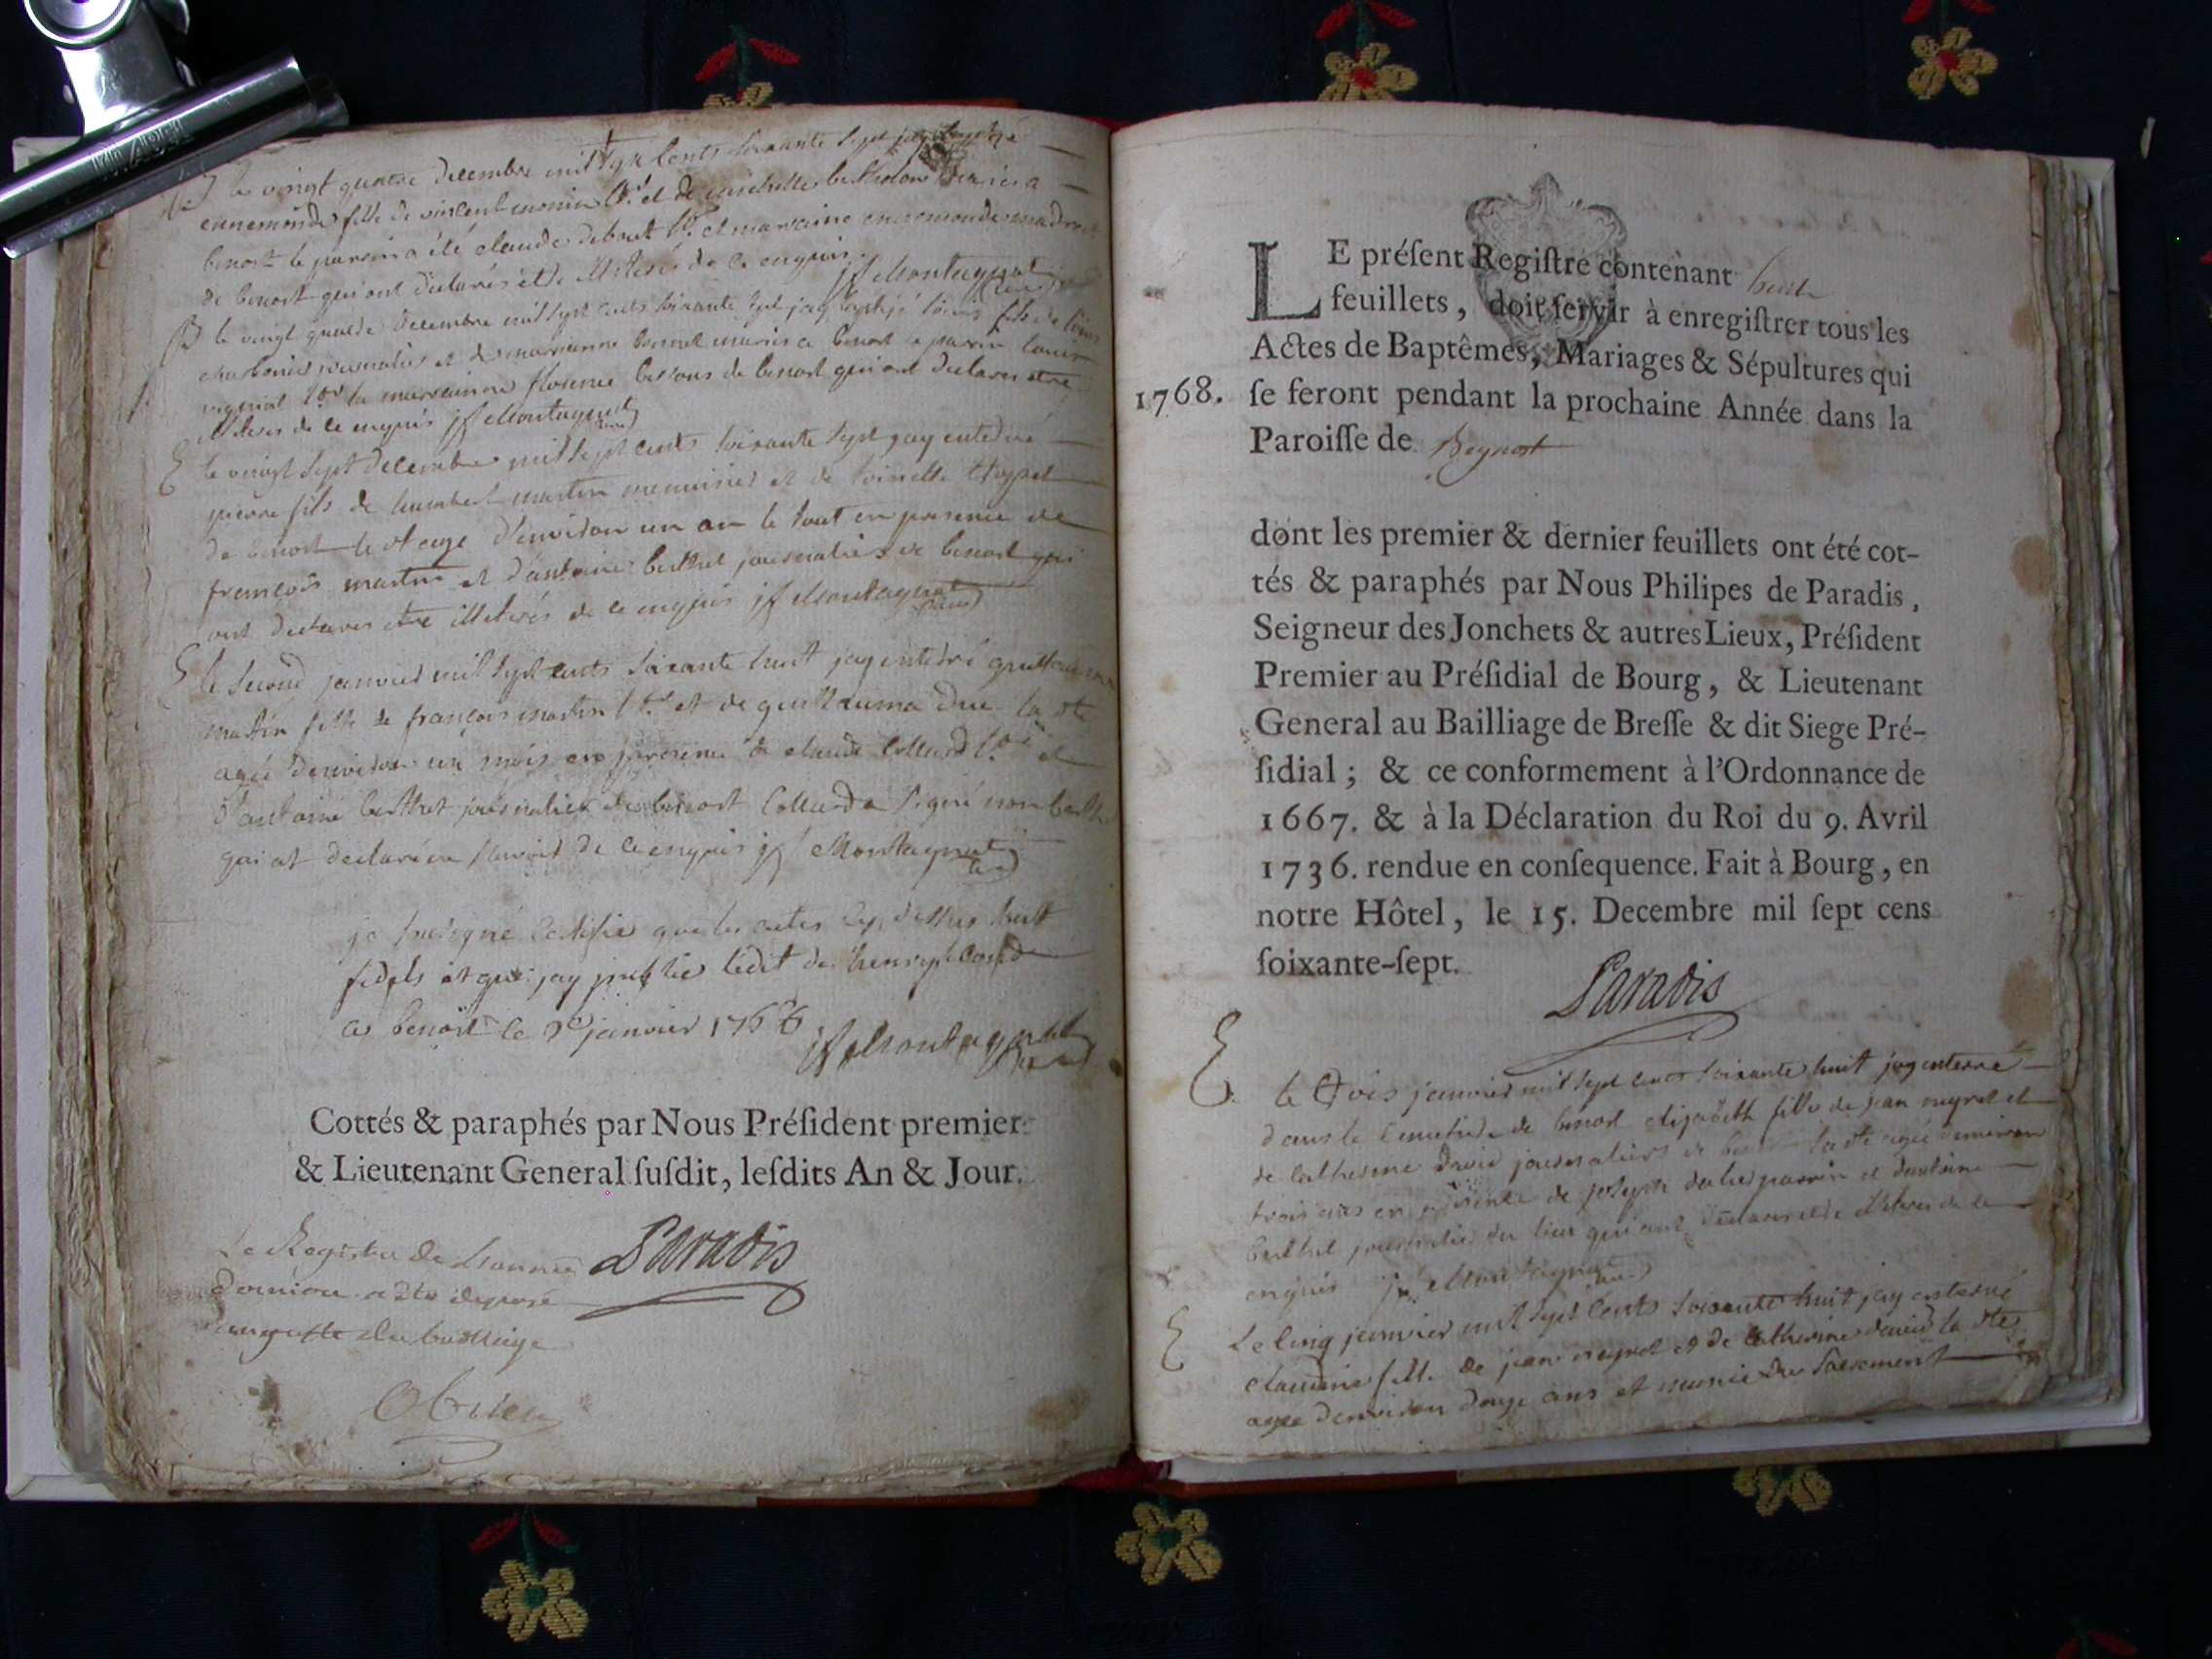 le vingt quatre decembre mil sept cents soixante sept jay
ennemonde fille de vincent monin et de michelle bertholon mariés a
benost le parein a été claude debout et marraine ennemonde
de benost qui ont declarés etre illiterés de ce enquis jf Montagnat curé
B le vingt quatre decembre mil sept cents soixante sept jay baptisé louis fils de louis
journalier et de marianne bonnet mariés a benost le parein louis
la marrainne florence de benost qui ont declarés etre
illiterés de ce enquis jf Montagnat curé
E le vingt sept decembre mil sept cents soixante sept jay enterré
pierre fils de humbert martin menuisier et de toinette
de benost le dt age d'environ un an le tout en presence de
françois martin et d'antoine berthet journaliers de benost qui
ont declarés etre illiterés de ce enquis jf Montagnat curé
E le second janvier mil sept cents soixante huit jay enterré guillauma
martin fille de françois martin et de guillauma la dte
agée d'environ un mois en presence de claude et
d'antoine berthet journalier de benost signé non
qui at declaré ne sçavoir de ce enquis jf Montagnat curé
je soussigné certifie que les actes cy dessus sont
fidels et que jay publié ledit de henry second
a benost le janvier 1768 jf Montagnat curé
Cottés & paraphés par Nous Préſident premier
& Lieutenant General ſuſdit, leſdits An & Jour.
Le Registre de L'année Paradis
derniere a ete deposé
au greffe du bailliage
LE préſent Regiſtre contenant huit
feuillets, doit ſervir à enregiſtrer tous les
Actes de Baptêmes, Mariages & Sépultures qui
1768. ſe feront pendant la prochaine Année dans la
Paroiſſe de Beynost
dont les premier & dernier feuillets ont été cot-
tés & paraphés par Nous Philipes de Paradis,
Seigneur des Jonchets & autres Lieux, Préſident
Premier au Préſidial de Bourg, & Lieutenant
General au Bailliage de Breſſe & dit Siege Pré-
ſidial; & ce conformement à l'Ordonnance de
1667. & à la Déclaration du Roi du 9. Avril
1736. rendue en conſequence. Fait à Bourg, en
notre Hôtel, le 15. Decembre mil ſept cens
ſoixante-ſept.
Paradis
E le trois janvier mil sept cents soixante huit jay enterré
dans le cimetiere de benost elizabeth fille de jean neyret et
de catherine david journaliers de benost la dte agée d'environ
trois ans en presence de joseph parrin et d'antoine
berthet journalier du lieu qui ont declarés etre illiterés de ce
enquis jf Montagnat curé
E Le cinq janvier mil sept cents soixante huit jay enterré
claudine fille de jean neyret et de catherine david la dte
agée d'environ douze ans et munie du Sacrement